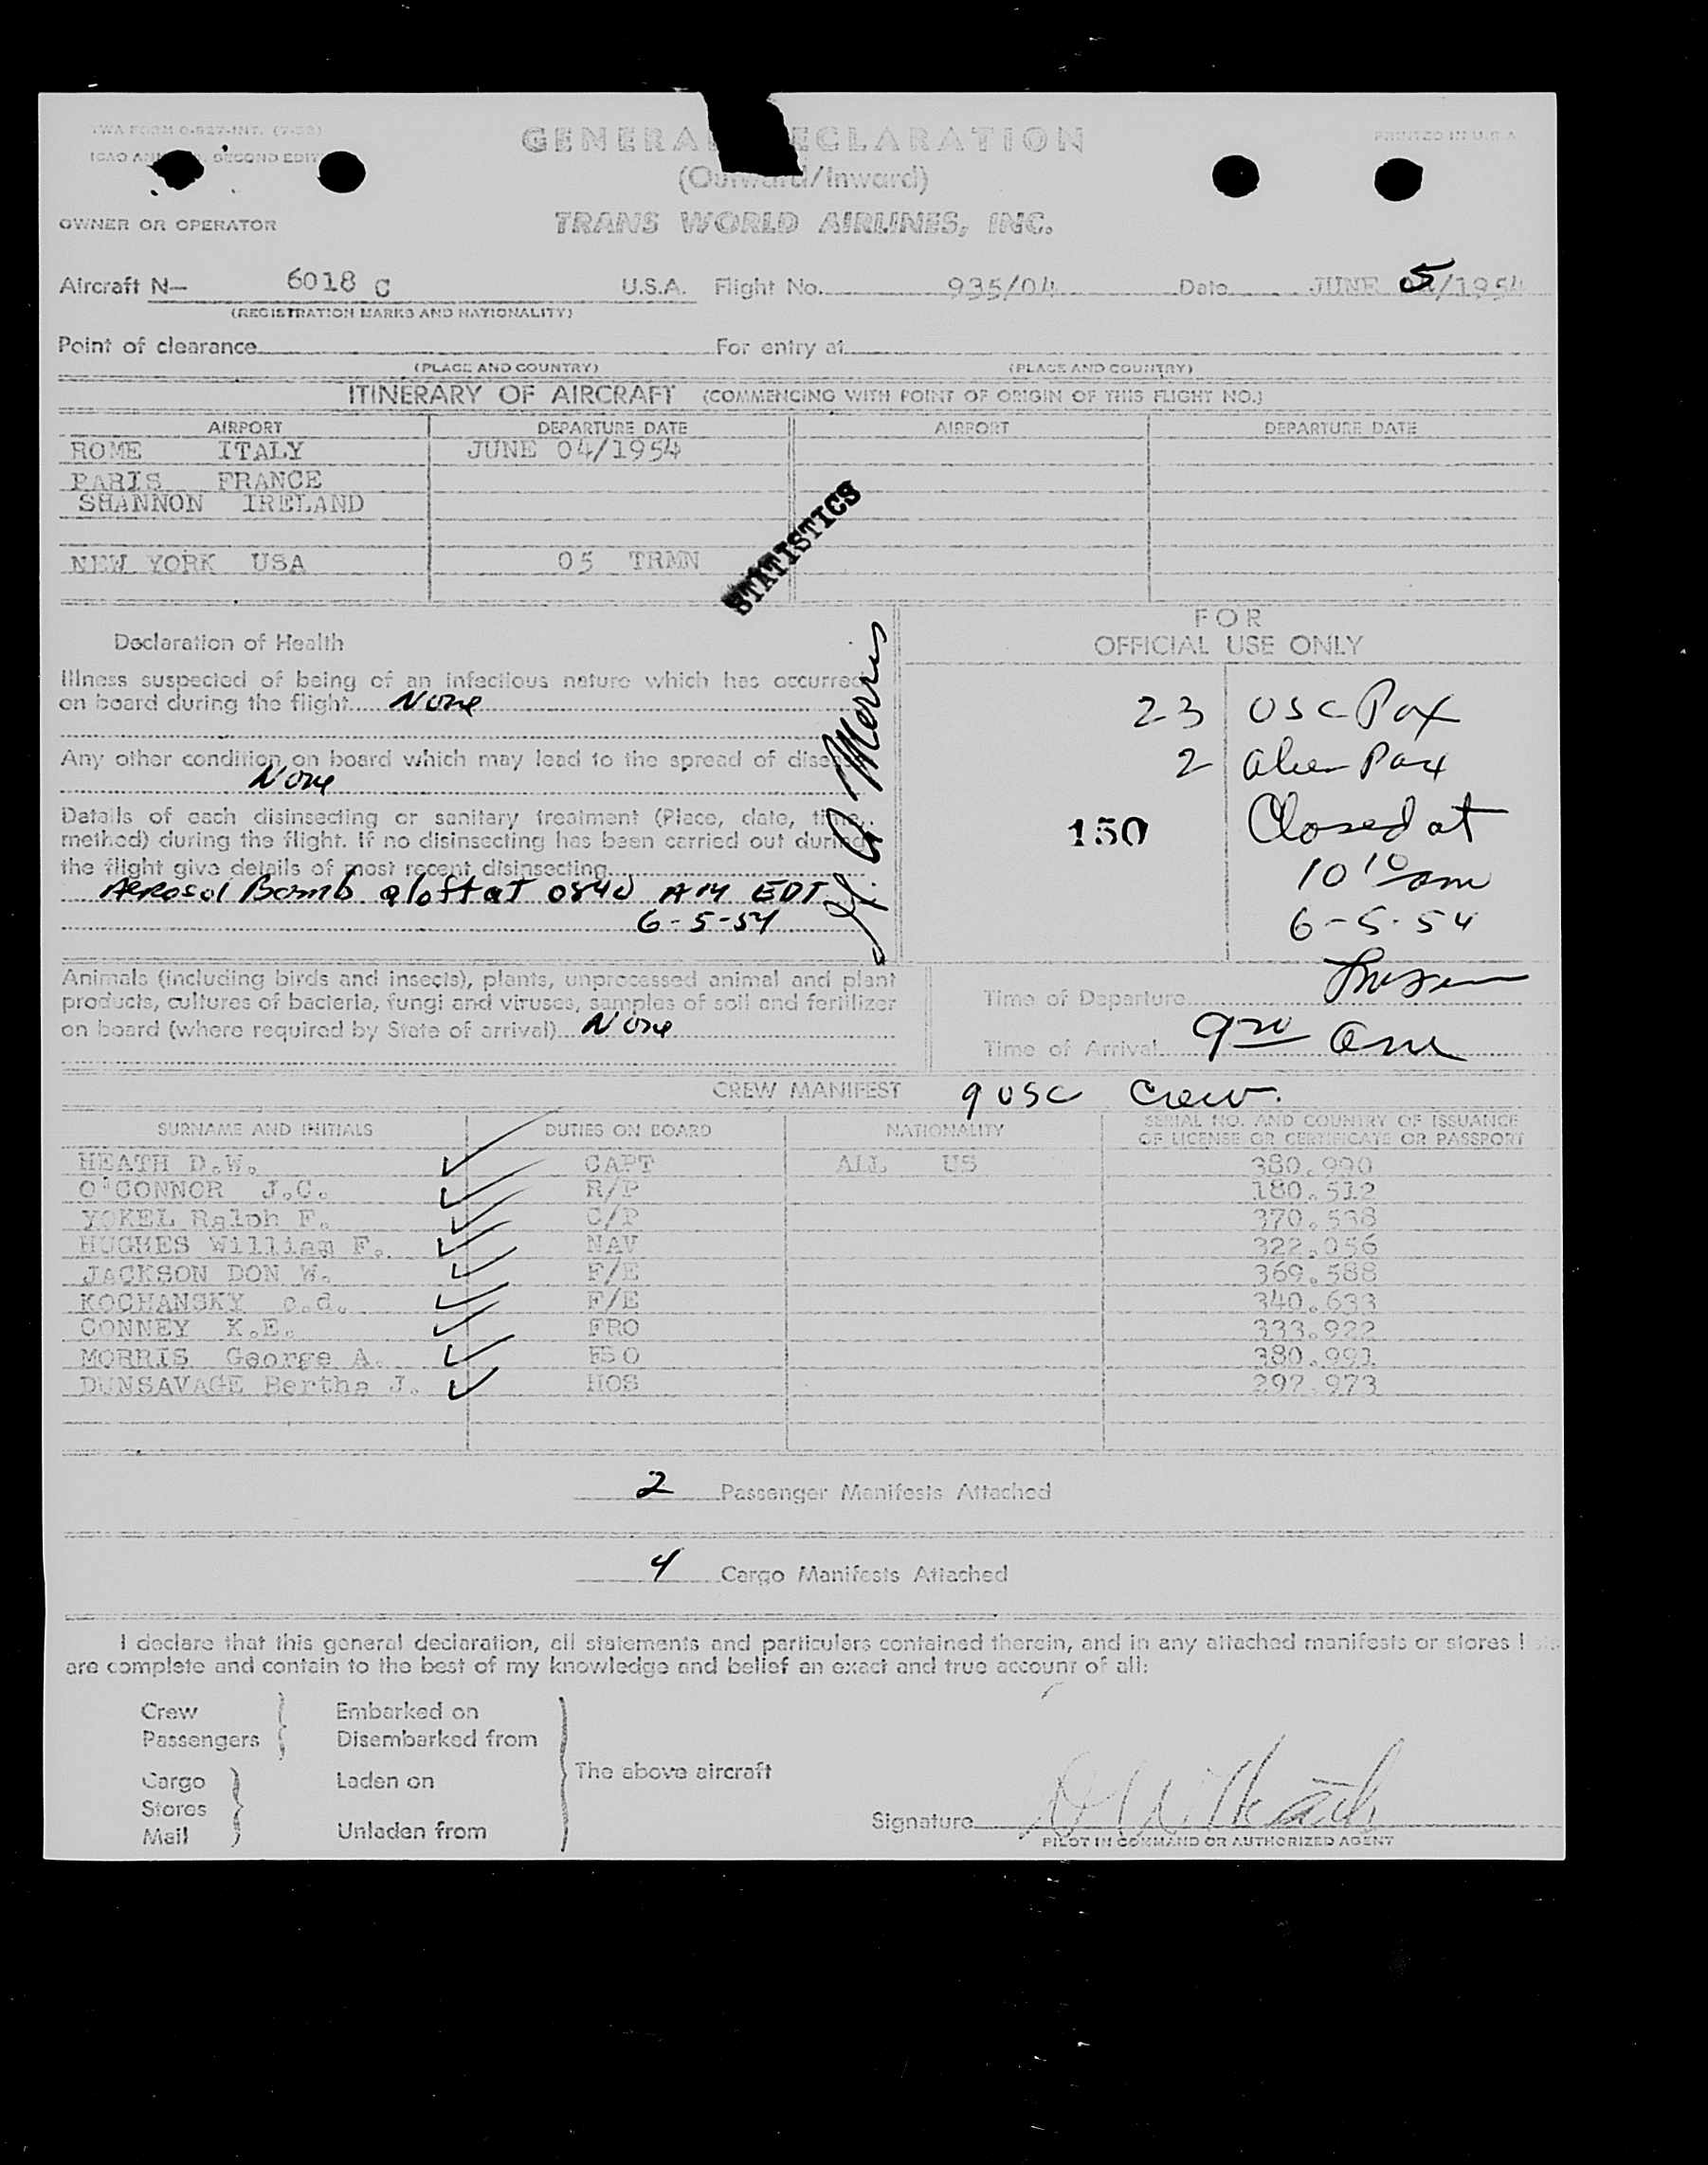 TWA FORM O-827-INT. (7-53)
PRINTED IN U.S.A
GENERA ECLARATION
ICAO SECOND
(Outward/Inward)
OWNER OR OPERATOR
TRANS WORLD AIRLINES, INC.
Aircraft N— 6018 C U.S.A. Flight No. 935/04 Date JUNE 5/1954
(REGISTRATION MARKS AND NATIONALITY)
Point of clearance For entry at
(PLACE AND COUNTRY) (PLACE AND COUNTRY)
ITINERARY OF AIRCRAFT (COMMENCING WITH POINT OF ORIGIN OF THIS FLIGHT NO.)
AIRPORT DEPARTURE DATE AIRPORT DEPARTURE DATE
ROME ITALY JUNE 04/1954
PARIS FRANCE
SHANNON IRELAND
STATISTICS
NEW YORK USA 05 TRMN
FOR
OFFICIAL USE ONLY
Declaration of Health
Illness suspected of being of an infectious nature which has occurred
on board during the flight None
Any other condition on board which may lead to the spread of disease
None
Details of each disinsecting or sanitary treatment (Place, date, time,
method) during the flight. If no disinsecting has been carried out during
the flight give details of most recent disinsecting
Aerosol Bomb aloft at 0840 AM EDT
6-5-54
G. A Morris
23 USC Pax
2 alien Pax
150 Closed at
10 10 am
6-5-54
Animals (including birds and insects), plants, unprocessed animal and plant
products, cultures of bacteria, fungi and viruses, samples of soil and fertilizer
on board (where required by State of arrival) None
Time of Departure
Time of Arrival 9 20 am
CREW MANIFEST 9 USC Crew.
SURNAME AND INITIALS DUTIES ON BOARD NATIONALITY SERIAL NO. AND COUNTRY OF ISSUANCE
OF LICENSE OR CERTIFICATE OR PASSPORT
HEATH D.W. CAPT ALL US 380.990
O'CONNOR J.C. R/P 180.512
YOKEL Ralph F. C/P 370.538
HUGHES William F. NAV 322.056
JACKSON DON W. F/E 369.588
KOCHANSKY c.d. F/E 340.633
CONNEY K.E. FRO 333.922
MORRIS George A. 380.991
DUNSAVAGE Bertha J. HOS 297.973
2 Passenger Manifests Attached
4 Cargo Manifests Attached
I declare that this general declaration, all statements and particulars contained therein, and in any attached manifests or stores
are complete and contain to the best of my knowledge and belief an exact and true account of all:
Crew Embarked on
Passengers Disembarked from
The above aircraft
Cargo Laden on
Stores
Mail Unladen from
Signature D W Heath
PILOT IN COMMAND OR AUTHORIZED AGENT